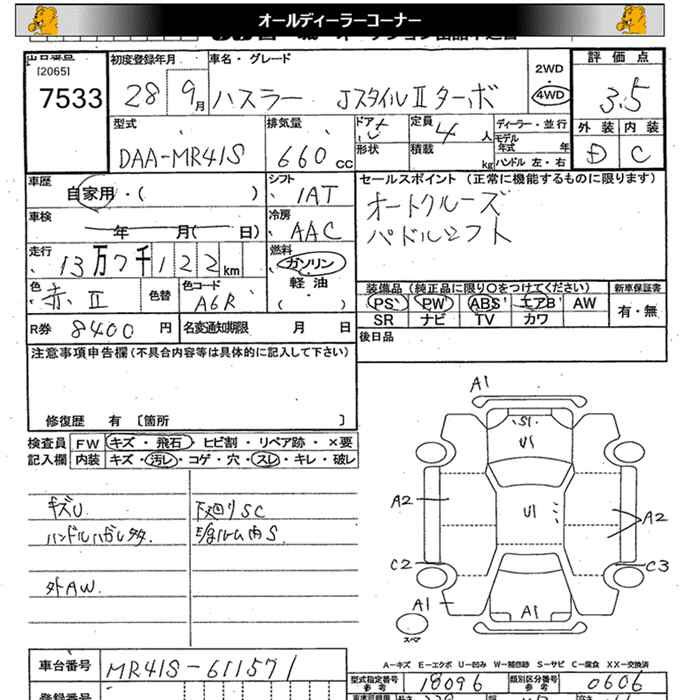 オールディーラーコーナー
出品番号 初度登録年月 車名・グレード 2WD 評価点
[2065]
7533 28 9月 ハスラー JスタイルⅡターボ 4WD 3.5
外装 内装
D C
型式 排気量 ドア 定員 ディーラー・並行
DAA-MR41S 660CC 5 4人 モデル年式 年
形状 積載 kg ハンドル 左・右
車歴 シフト セールスポイント (正常に機能するものに限ります)
自家用・( ) IAT オートクルーズ
車検 冷房 パドルシフト
年 月( 日) AAC
走行 燃料
13万7千122km ガソリン
軽油
( )
色 色替 色コード 装備品 (純正品に限り○をつけてください) 新車保証書
赤Ⅱ A6R PS PW ABS エアB AW 有・無
SR ナビ TV カワ
R券 8400円 名変通知期限 月 日 後日品
注意事項申告欄 (不具合内容等は具体的に記入して下さい)
修復歴 有 [箇所 ]
検査員 FW キズ・飛石・ヒビ割・リペア跡・×要
記入欄 内装 キズ・汚レ・コゲ・穴・スレ・キレ・破レ
キズU 下廻りSC
ハンドルハガレ 室ルーム内S
外AW.
A1
S1
U1
A2 U1 A2
C2 C3
A1 A1
スペア
A−キズ E−エクボ U−凹み W−補修跡 S−サビ C−腐食 XX−交換済
車台番号 MR41S-611571 型式指定番号 参考 18096 類別区分番号 参考 0606
登録番号